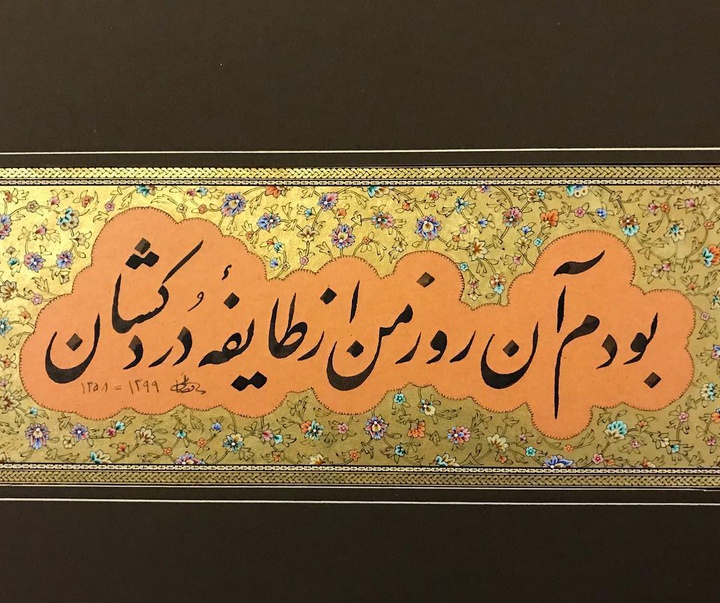 بودم آن روز من از طایفهٔ دُردکشان
۱۳۵۸ = ۱۳۹۹